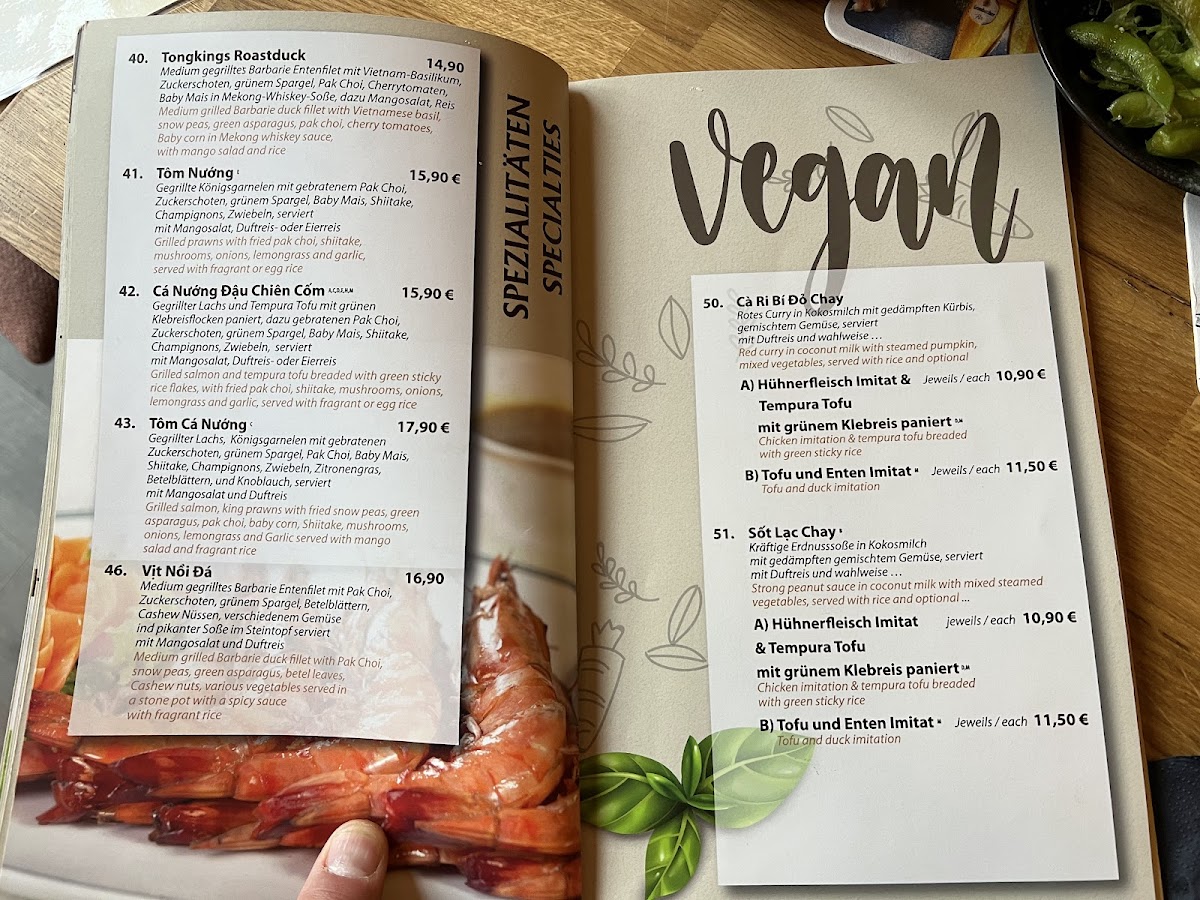 40. Tongkings Roastduck 14,90
Medium gegrilltes Barbarie Entenfilet mit Vietnam-Basilikum,
Zuckerschoten, grünem Spargel, Pak Choi, Cherrytomaten,
Baby Mais in Mekong-Whiskey-Soße, dazu Mangosalat, Reis
Medium grilled Barbarie duck fillet with Vietnamese basil,
snow peas, green asparagus, pak choi, cherry tomatoes,
Baby corn in Mekong whiskey sauce,
with mango salad and rice
41. Tôm Nướng 15,90 €
Gegrillte Königsgarnelen mit gebratenem Pak Choi,
Zuckerschoten, grünem Spargel, Baby Mais, Shiitake,
Champignons, Zwiebeln, serviert
mit Mangosalat, Duftreis- oder Eierreis
Grilled prawns with fried pak choi, shiitake,
mushrooms, onions, lemongrass and garlic,
served with fragrant or egg rice
42. Cá Nướng Đậu Chiên Cốm A,C,D,E,H,M 15,90 €
Gegrillter Lachs und Tempura Tofu mit grünen
Klebreisflocken paniert, dazu gebratenen Pak Choi,
Zuckerschoten, grünem Spargel, Baby Mais, Shiitake,
Champignons, Zwiebeln, serviert
mit Mangosalat, Duftreis- oder Eierreis
Grilled salmon and tempura tofu breaded with green sticky
rice flakes, with fried pak choi, shiitake, mushrooms, onions,
lemongrass and garlic, served with fragrant or egg rice
43. Tôm Cá Nướng 17,90 €
Gegrillter Lachs, Königsgarnelen mit gebratenen
Zuckerschoten, grünem Spargel, Pak Choi, Baby Mais,
Shiitake, Champignons, Zwiebeln, Zitronengras,
Betelblättern, und Knoblauch, serviert
mit Mangosalat und Duftreis
Grilled salmon, king prawns with fried snow peas, green
asparagus, pak choi, baby corn, Shiitake, mushrooms,
onions, lemongrass and Garlic served with mango
salad and fragrant rice
46. Vit Nồi Đá 16,90
Medium gegrilltes Barbarie Entenfilet mit Pak Choi,
Zuckerschoten, grünem Spargel, Betelblättern,
Cashew Nüssen, verschiedenem Gemüse
ind pikanter Soße im Steintopf serviert
mit Mangosalat und Duftreis
Medium grilled Barbarie duck fillet with Pak Choi,
snow peas, green asparagus, betel leaves,
Cashew nuts, various vegetables served in
a stone pot with a spicy sauce
with fragrant rice
SPEZIALITÄTEN
SPECIALTIES
vegan
50. Cà Ri Bí Đỏ Chay
Rotes Curry in Kokosmilch mit gedämpften Kürbis,
gemischtem Gemüse, serviert
mit Duftreis und wahlweise ...
Red curry in coconut milk with steamed pumpkin,
mixed vegetables, served with rice and optional
A) Hühnerfleisch Imitat & Jeweils / each 10,90 €
Tempura Tofu
mit grünem Klebreis paniert D,M
Chicken imitation & tempura tofu breaded
with green sticky rice
B) Tofu und Enten Imitat Jeweils / each 11,50 €
Tofu and duck imitation
51. Sốt Lạc Chay
Kräftige Erdnusssoße in Kokosmilch
mit gedämpften gemischtem Gemüse, serviert
mit Duftreis und wahlweise ...
Strong peanut sauce in coconut milk with mixed steamed
vegetables, served with rice and optional ...
A) Hühnerfleisch Imitat jeweils / each 10,90 €
& Tempura Tofu
mit grünem Klebreis paniert D,M
Chicken imitation & tempura tofu breaded
with green sticky rice
B) Tofu und Enten Imitat Jeweils / each 11,50 €
Tofu and duck imitation